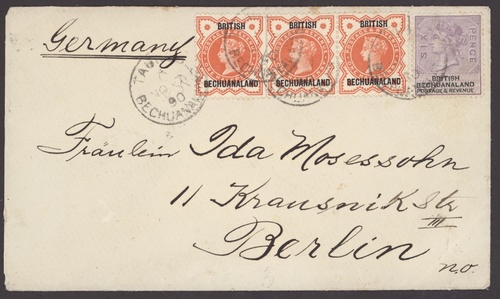 Germany
BRITISH BECHUANALAND
BRITISH BECHUANALAND
BRITISH BECHUANALAND
SIX PENCE
BRITISH
BECHUANALAND
POSTAGE & REVENUE
BECHUANAL
90
Fräulein Ida Mosessohn
11 Krausnik Str
III
Berlin
N.O.